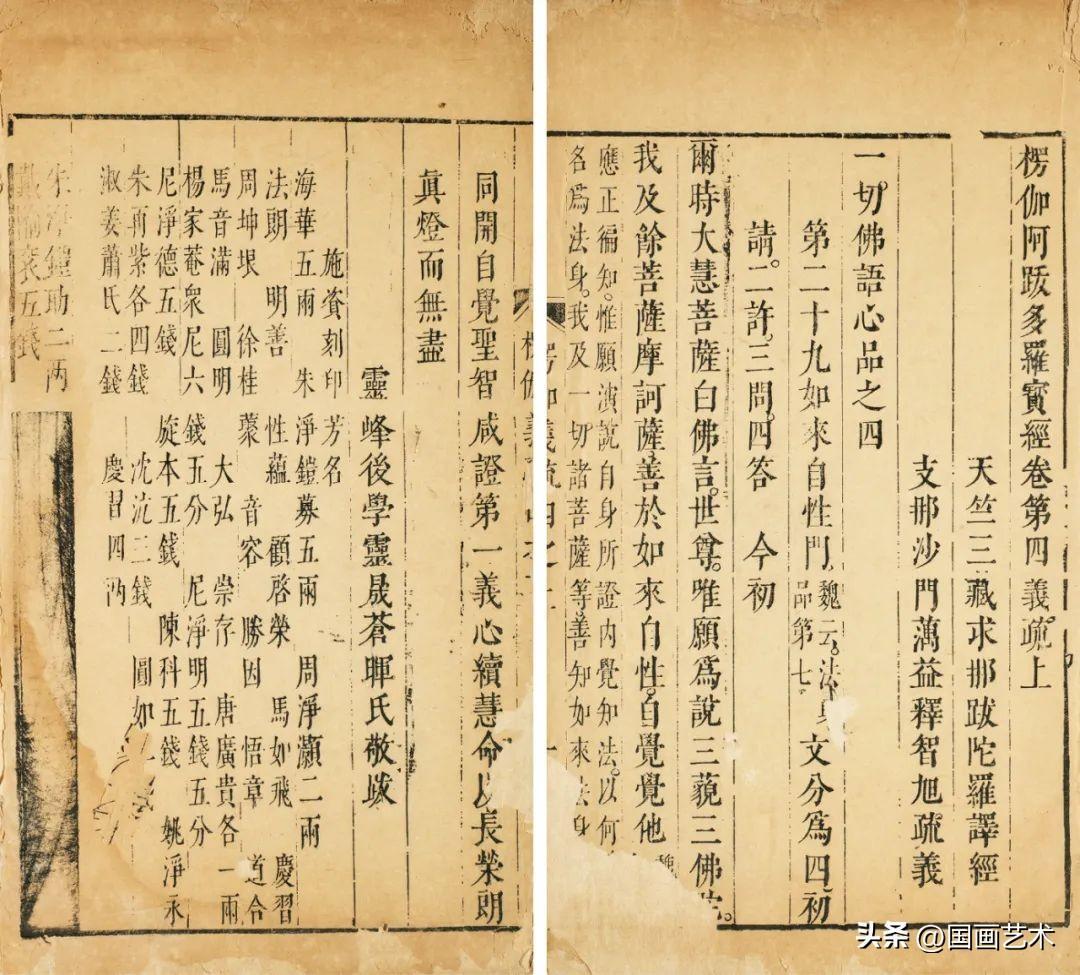 楞伽阿跋多羅寶經卷第四義疏上
天竺三藏求那跋陀羅譯經
支那沙門蕅益釋智旭疏義
一切佛語心品之四
第二十九如來自性門。魏云。法身品第七。文分爲四初
請。二許。三問。四答　今初
爾時大慧菩薩白佛言。世尊。唯願爲說三藐三佛陀。
我及餘菩薩摩訶薩善於如來自性。自覺覺他
應正徧知。惟願演說自身所證內覺知法。以何
名爲法身。我及一切諸菩薩等善知如來法身
楞伽義疏四之上
同開自覺聖智咸證第一義心續慧命以長榮朗
眞燈而無盡
靈峰後學靈晟蒼暉氏敬跋
施資刻印芳名
海華五兩　朱淨鎧募五兩　周淨灝二兩
法朗　明善　性蘊　顧啓榮　馬如飛　慶習
周坤垠　徐桂蘂　音容　勝因　悟章　道合
馬音滿　圓明　大弘　崇存　唐廣貴各一兩
楊家菴衆尼六錢五分　尼淨明五錢五分
尼淨德五錢　旋本五錢　陳科五錢　姚淨永
朱再紫各四錢　沈沆三錢　圓如
淑姜蕭氏二錢　慶習四兩
朱淨鎧助二兩
五錢
头条 @国画艺术